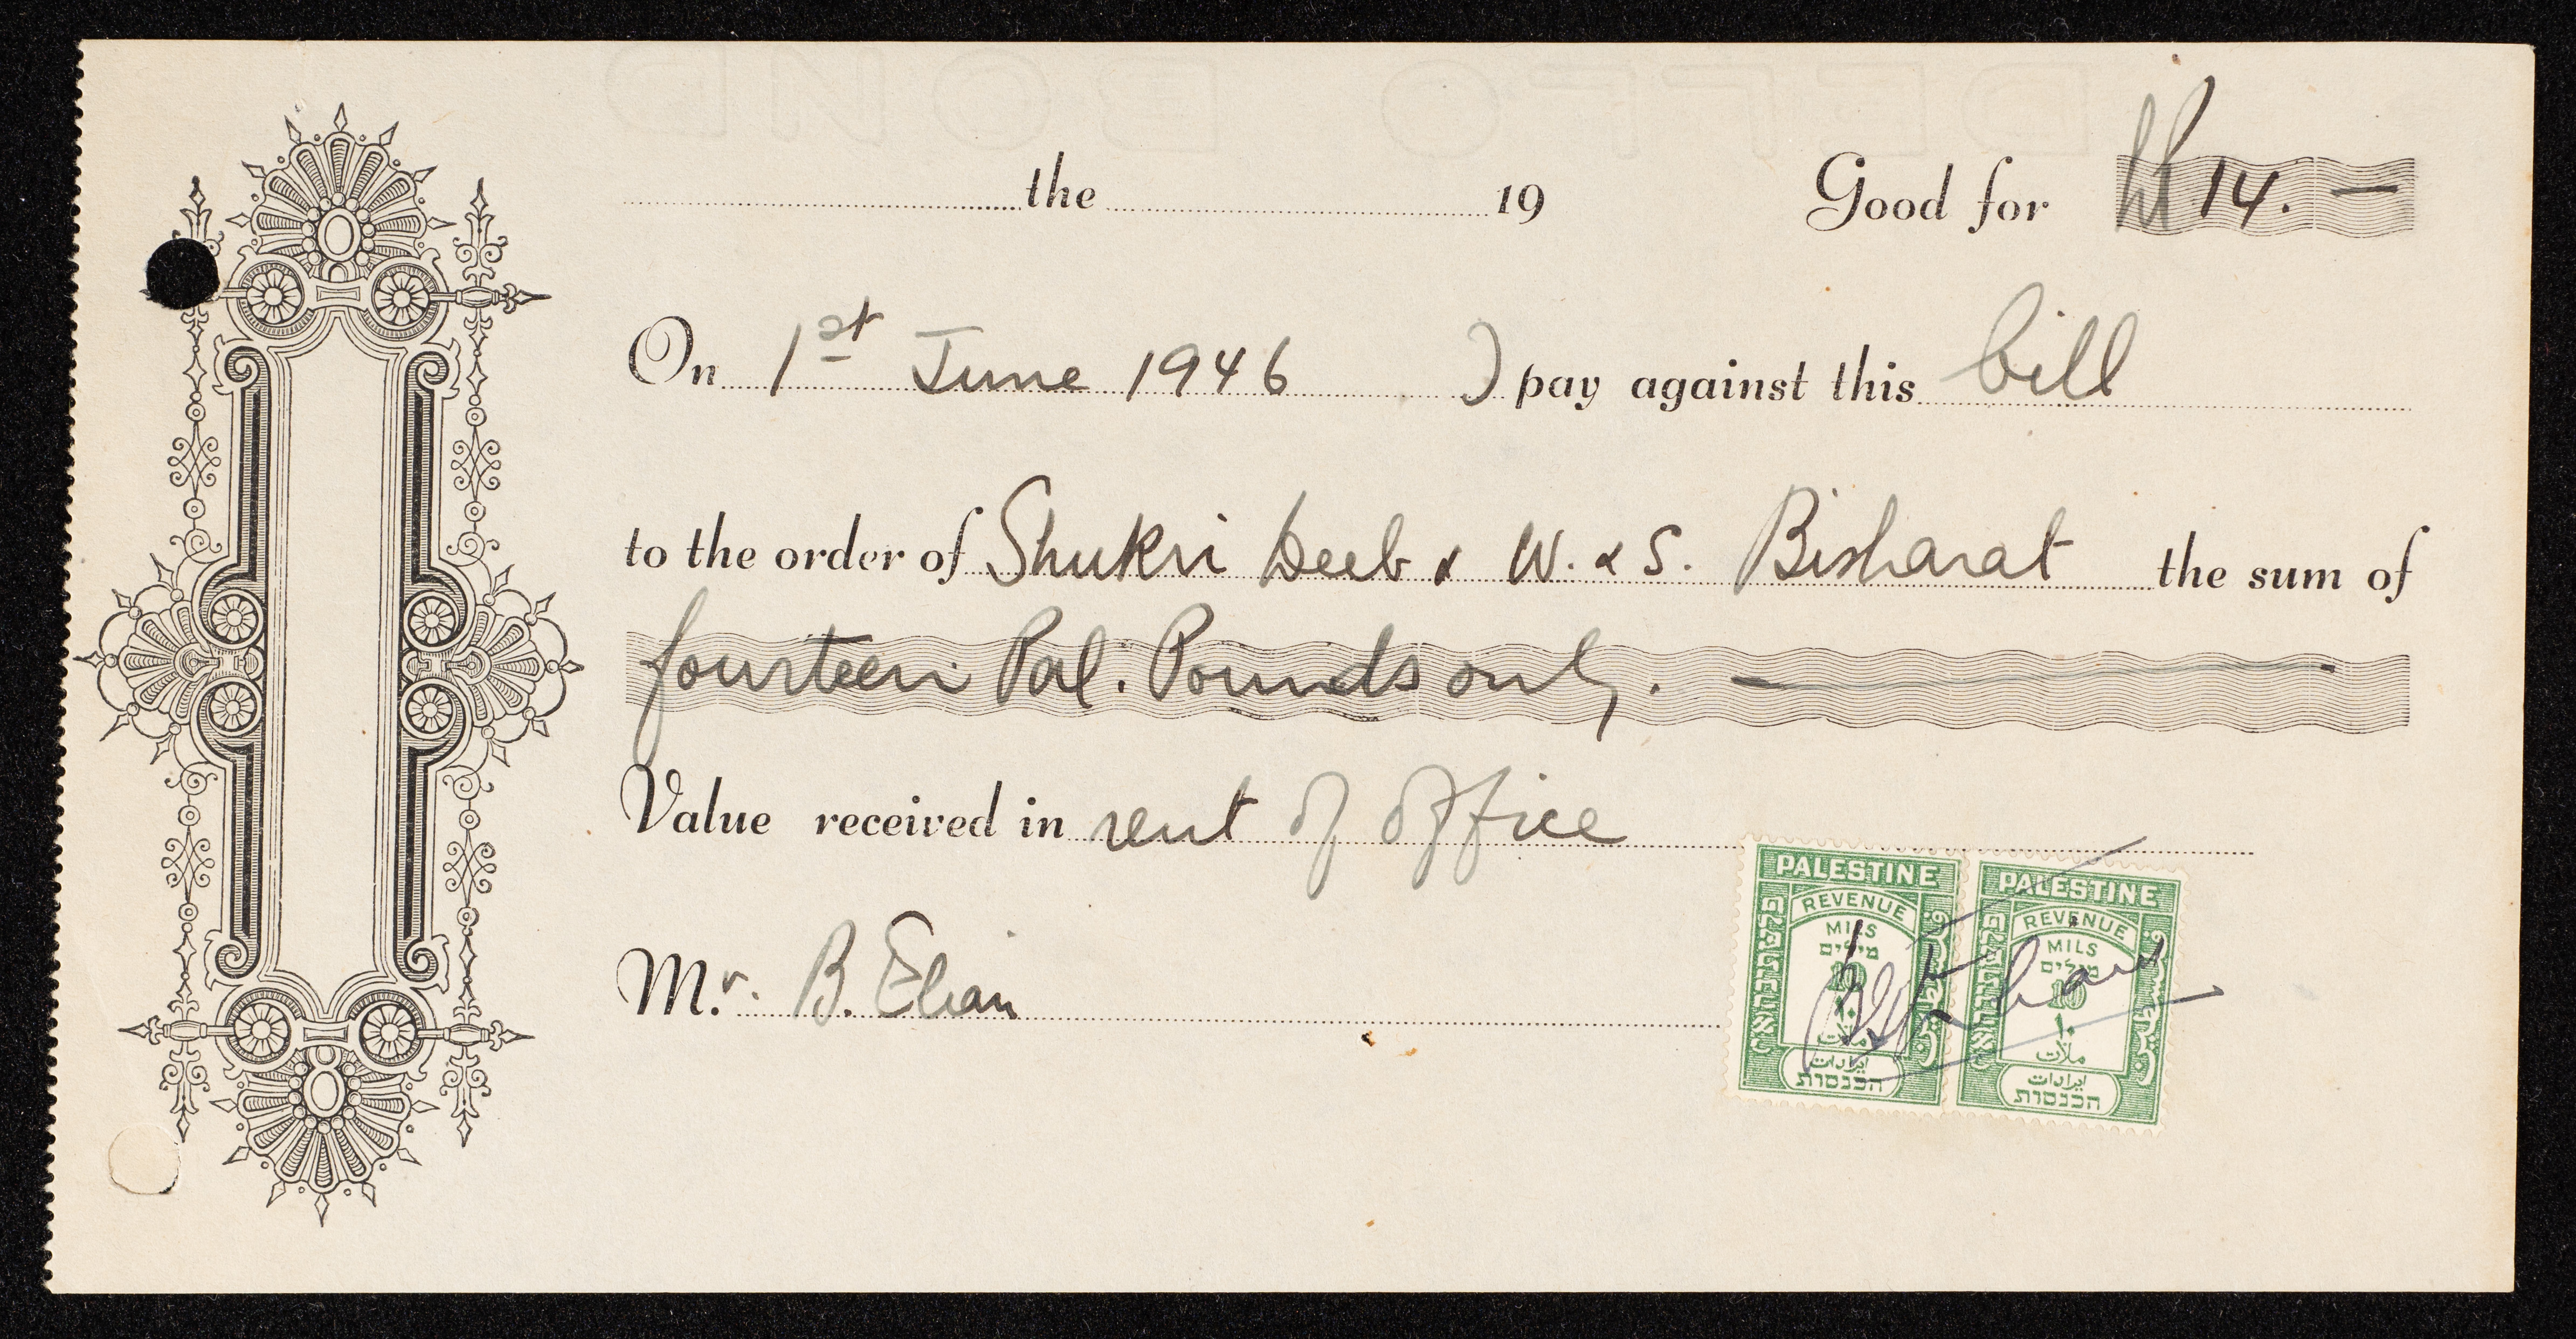 the 19 Good for 14. —
On 1st June 1946 I pay against this bill
to the order of Shukri Deeb & W. & S. Bisharat the sum of
fourteen Pal. Pounds only. —
Value received in rent of office
Mr. B. Elian
PALESTINE
REVENUE
MILS
מילים
10
١٠
ملات
ايرادات
הכנסות
פלשתינה א״י
فلسطين
PALESTINE
REVENUE
MILS
מילים
10
١٠
ملات
ايرادات
הכנסות
פלשתינה א״י
فلسطين